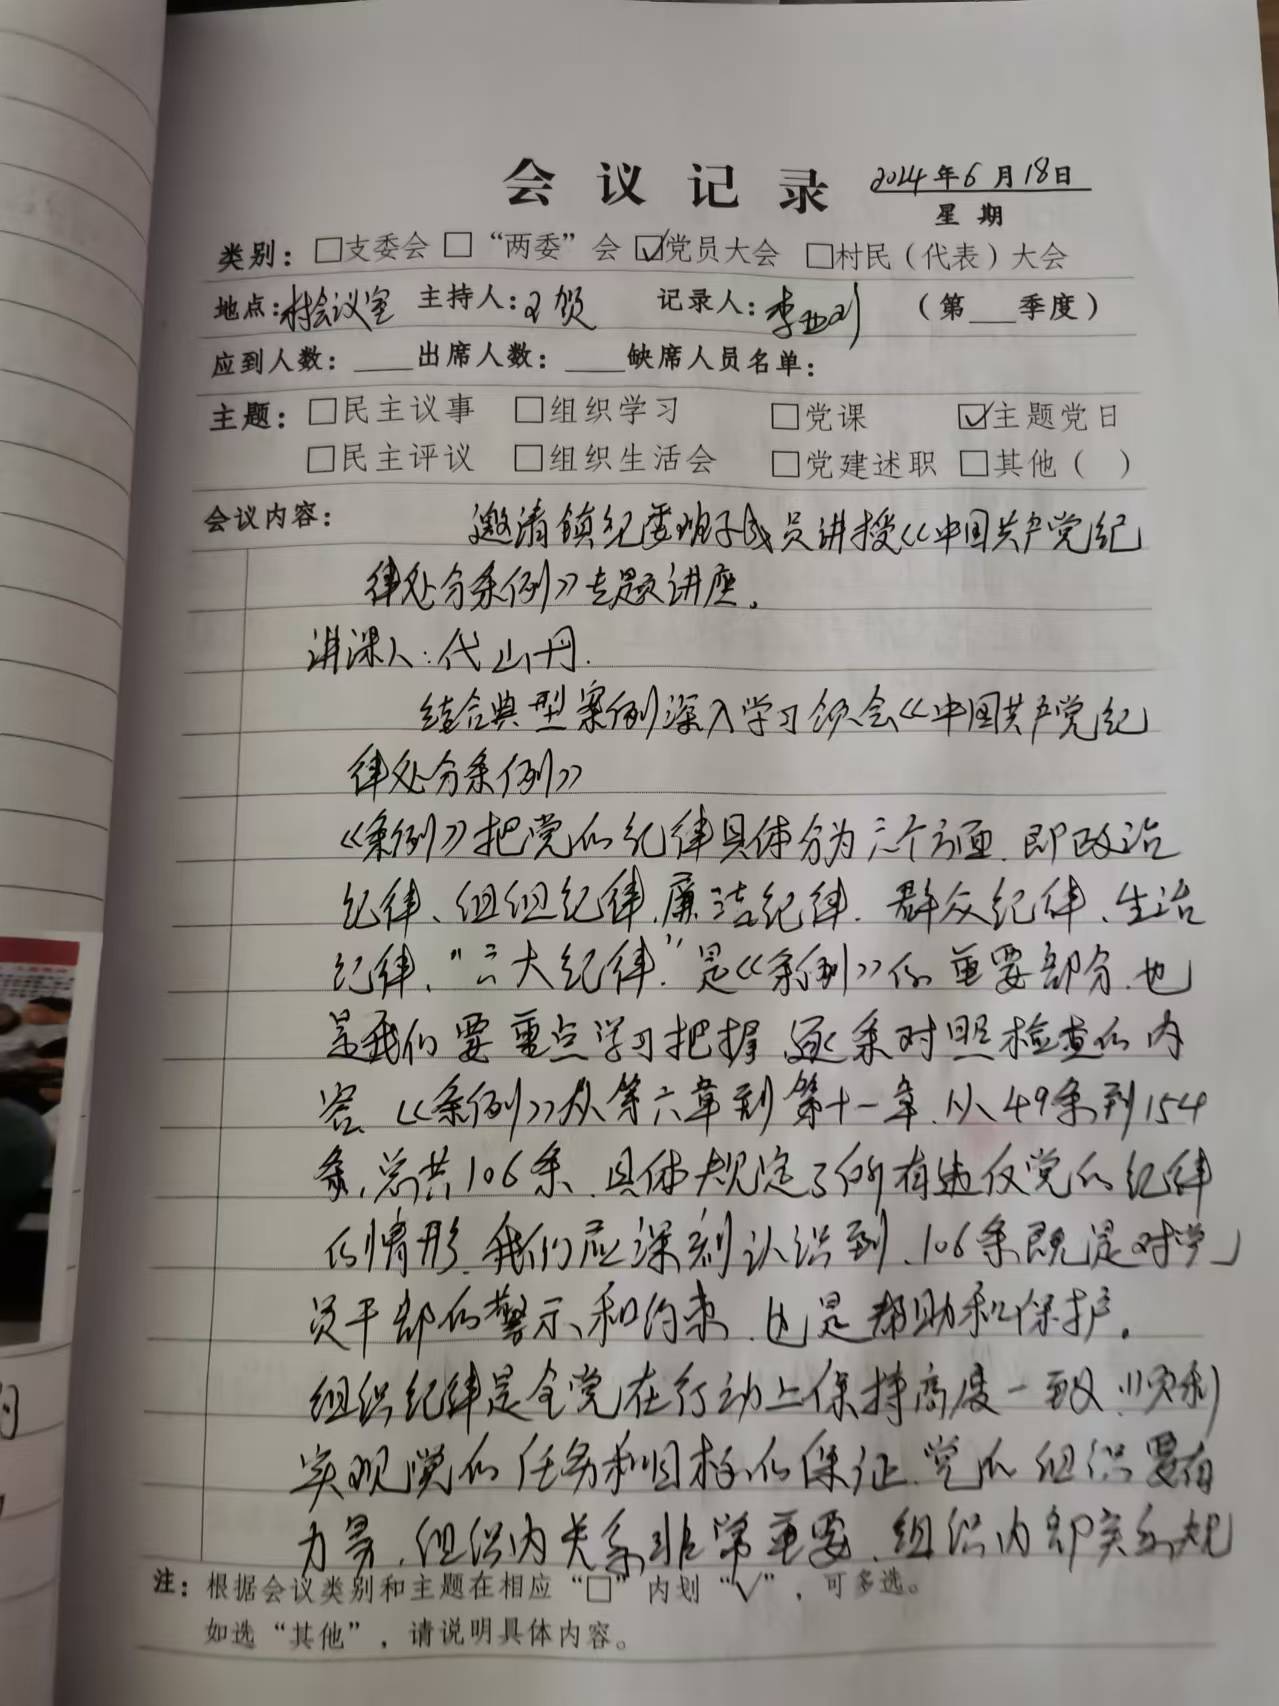 会议记录 2024年6月18日
星期
类别：□支委会 □“两委”会 ☑党员大会 □村民（代表）大会
地点：村会议室 主持人：王贺 记录人：李亚 （第___季度）
应到人数：____出席人数：____缺席人员名单：
主题：□民主议事 □组织学习 □党课 ☑主题党日
□民主评议 □组织生活会 □党建述职 □其他（ ）
会议内容： 邀请镇纪委班子成员讲授《中国共产党纪
律处分条例》专题讲座。
讲课人：代山丹.
结合典型案例深入学习领会《中国共产党纪
律处分条例》
《条例》把党的纪律具体分为六个方面、即政治
纪律、组织纪律、廉洁纪律、群众纪律、生活
纪律、“六大纪律”是《条例》的重要部分、也
是我们要重点学习把握、逐条对照检查的内
容、《条例》从第六章到第十一章、从49条到154
条、总共106条、具体规定了所有违反党的纪律
的情形、我们应深刻认识到、106条既是对党
员干部的警示和约束、也是帮助和保护。
组织纪律是全党在行动上保持高度一致、顺利
实现党的任务和目标的保证、党的组织要有
力量、组织内关系非常重要、组织内部关系规
注：根据会议类别和主题在相应“□”内划“√”，可多选。
如选“其他”，请说明具体内容。